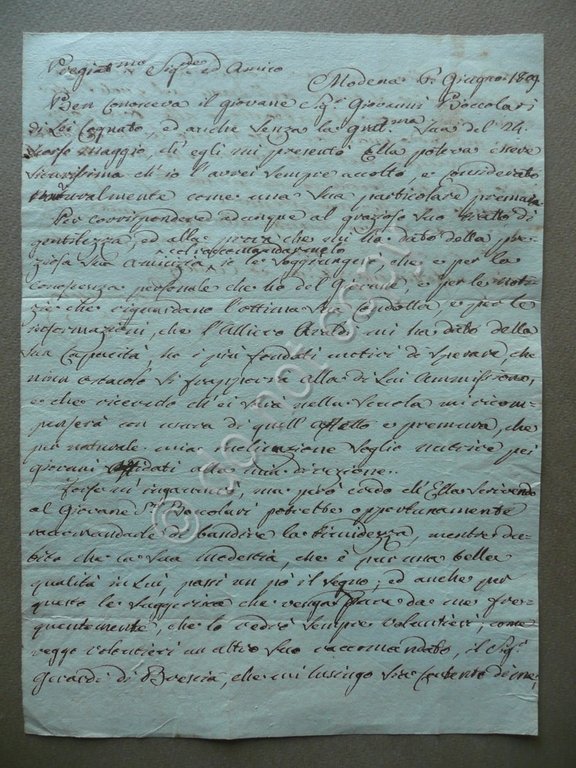 Pregiat.mo Sig.re ed Amico
Modena 6. Giugno 1809
Ben conosceva il giovane Sig.r Giovanni Boccolari
di Lei Cognato, ed anche senza la grat.ma Sua del 24
scorso Maggio, ch'egli mi presentò Ella poteva essere
sicurissima ch'io l'avrei sempre accolto e considerato
naturalmente come una Sua particolare premura
Per corrispondere adunque al grazioso Suo tratto di
gentilezza, ed alla prova che mi ha dato della pre-
giosa Sua amicizia col raccomandarmelo io le soggiungo che e per la
conoscenza personale che ho del Giovane, e per le noti-
zie che riguardano l'ottima Sua condotta, e per le
informazioni, che l'Allievo Araldi mi ha dato della
Sua capacità, ho i più fondati motivi di sperare, che
niun ostacolo si frapporrà alla di Lui Ammissione,
e che riescendo ch'ei sarà nella Scuola mi ricom-
penserà con usura di quell'affetto e premura, che
per naturale mia inclinazione soglio nutrire pei
giovani affidati alla mia direzione.
Forse m'ingannerò, ma però credo ch'Ella scrivendo
al Giovane S.r Boccolari potrebbe opportunamente
raccomandarle di bandire la timidezza, mentre du-
bito che la Sua modestia, che è pur una bella
qualità in Lui, passi un pò il segno; ed anche per
questo le suggerirà che venga pure da me fre-
quentemente, che lo vedrò sempre volentieri, come
veggo volentieri un altro Suo raccomandato, il Sig.r
Girardi di Brescia, che mi lusingo sia contento di me,